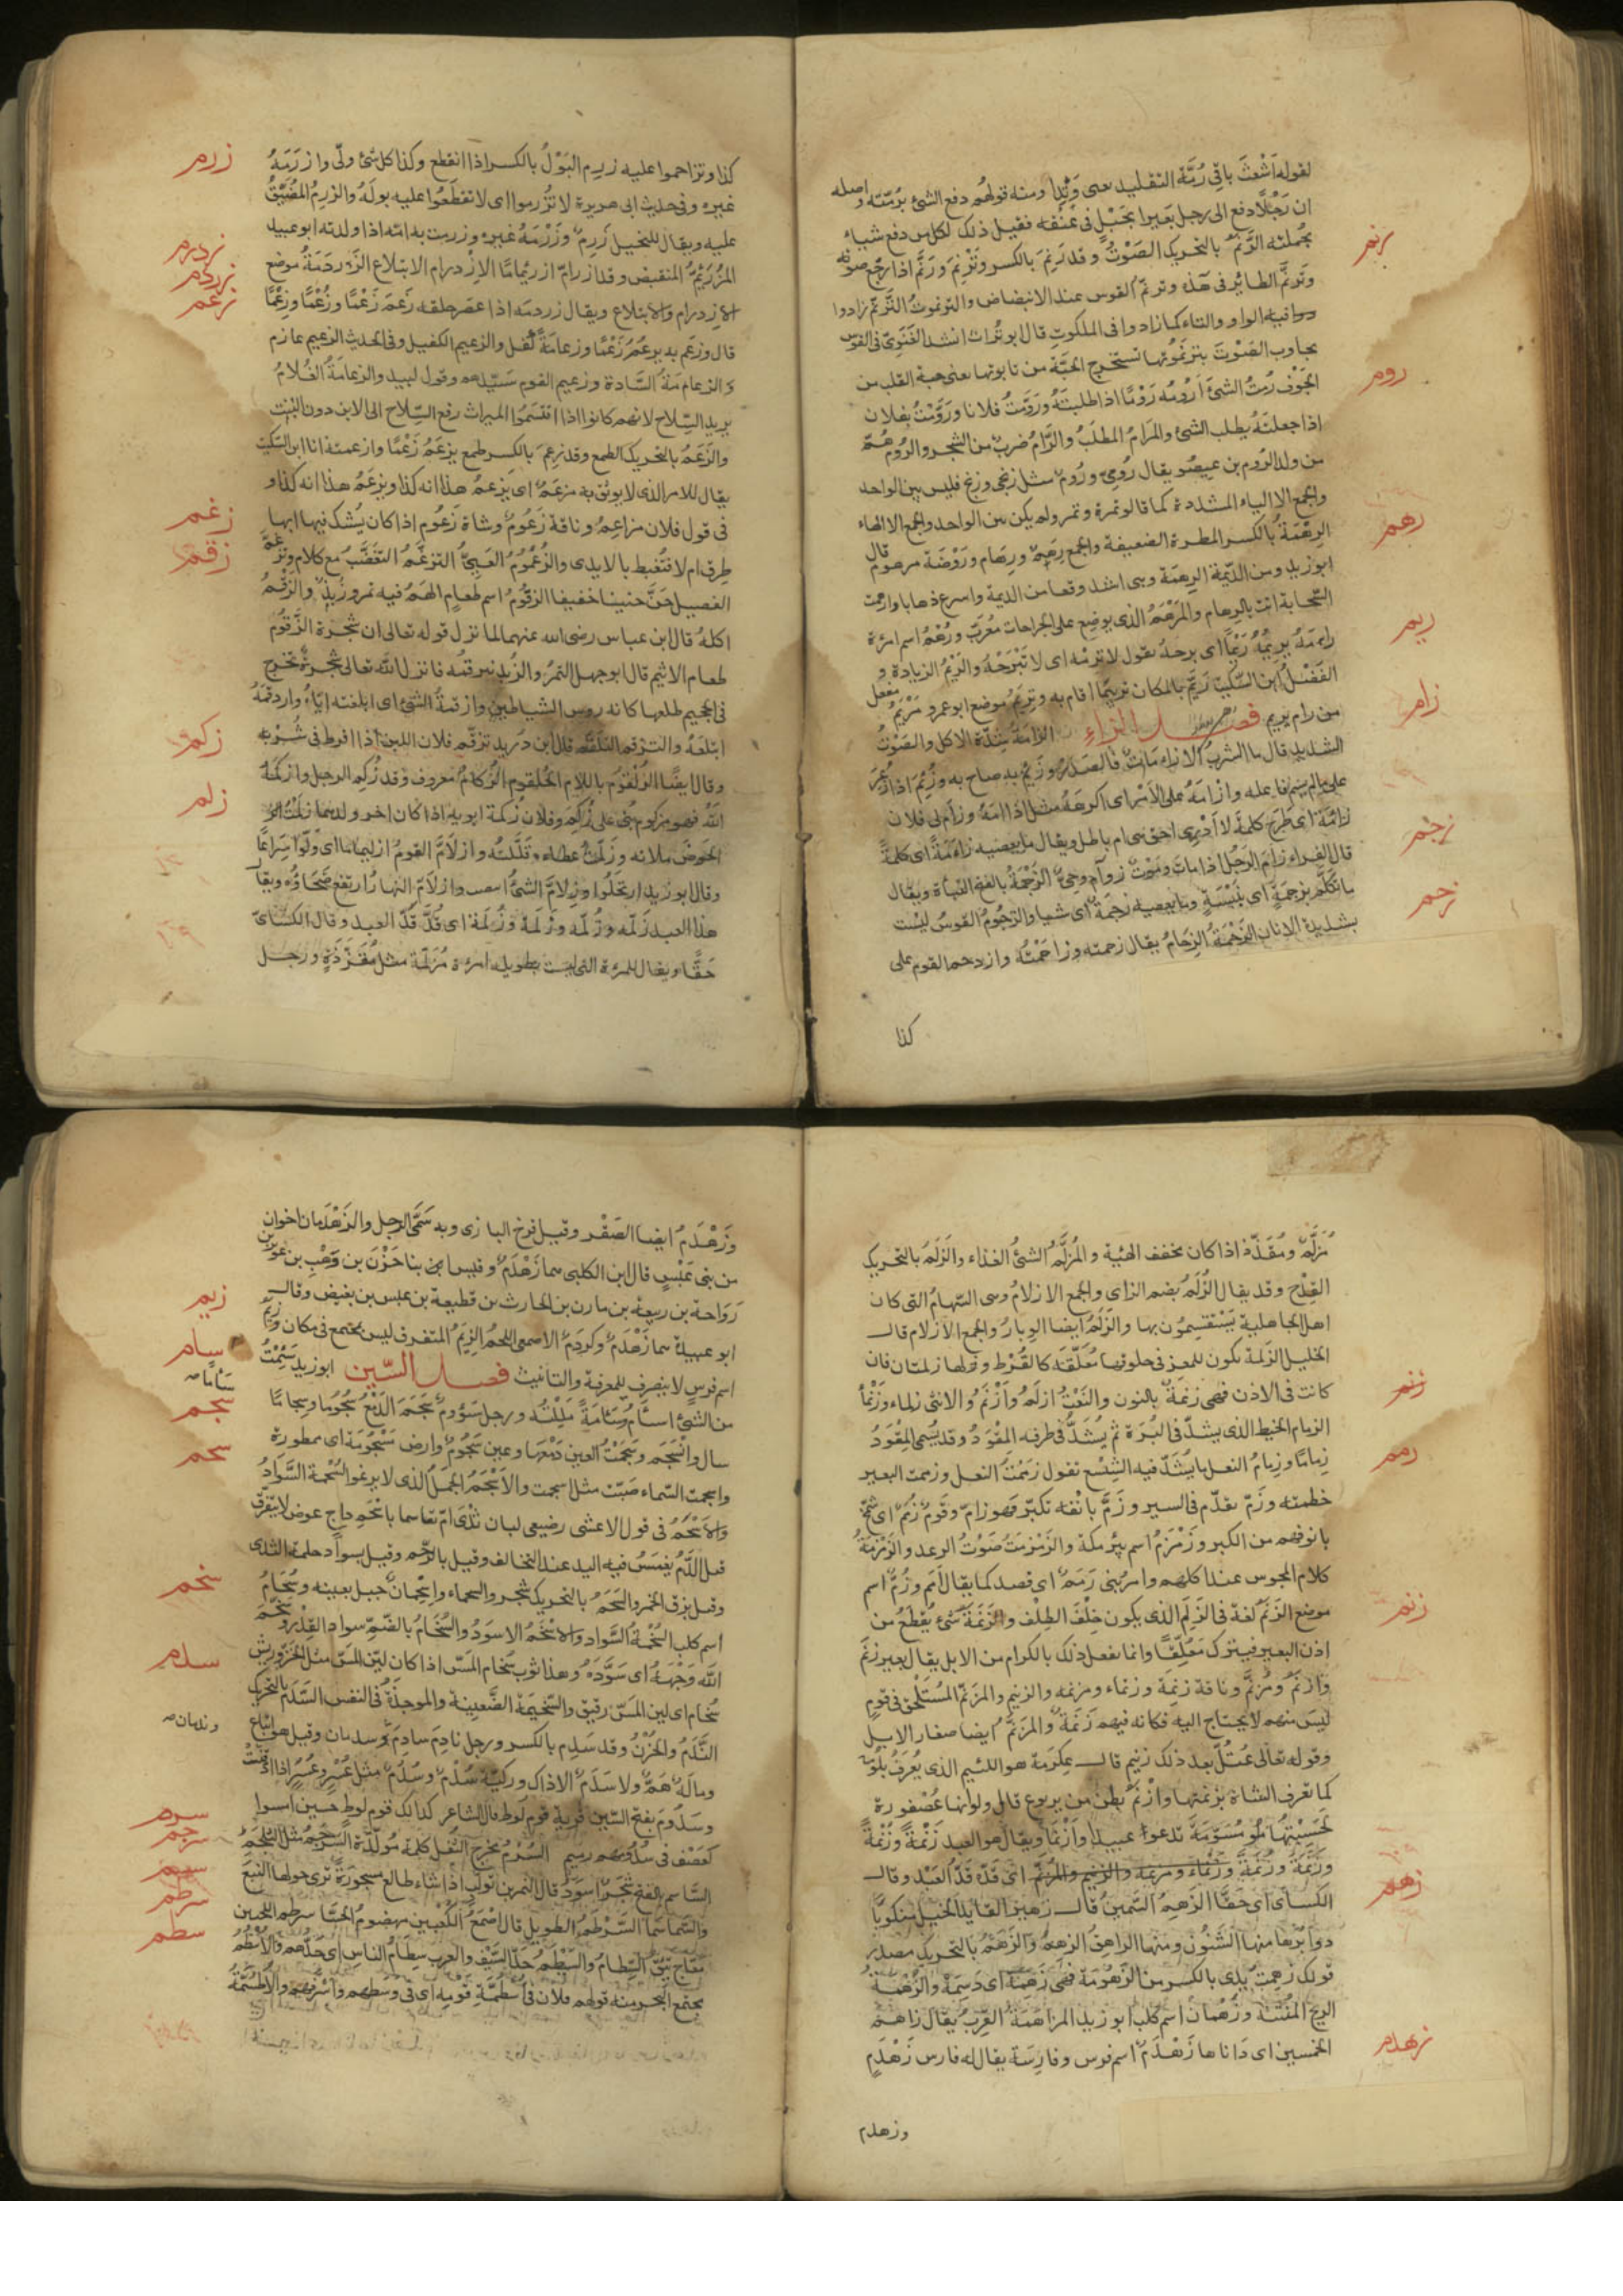 لقوله أَشْعَثَ باقى رُمَّة التقليد يعنى وَتِدًا ومنه قولهم دفع الشئ برُمّته واصله
ان رَجُلًا دفع الى رجل بَعيرا بحَبْلٍ فى عُنُقه فقيل ذلك لكل من دفع شيأ
بجُملته الرَّنَمُ بالتحريك الصَوْتُ وقد رَنِمَ بالكسر وتَرَنَّمَ ورَنَّم اذا رجّع صوته
رنم
وتَرنَّم الطائر فى وترنّم القوس عند الانباض والترنموتُ التَرَنُّم زادوا
فيه الواو والتاء كما زادوا فى الملكوتِ قال ابو تُراب انشد الغَنَوِىّ فى القوس
تجاوب الصَوْتَ بترنمُوتها تستخرج الحَبَّة من تابوتها يعنى حبة القلب من
الجَوْف رُمتُ الشئَ أَرُومُه رَوْمًا اذا طلبتَهُ ورَوَّمتُ فلانا ورَوَّمْتُ بفلان
روم
اذا جعلتَهُ يطلب الشئ والمَرَامُ المطلَبُ والرَّامُ ضربٌ من الشجر والرُوم هُمْ
من ولد الرُوم بن عيصُو يقال رُومِىّ ورُومٌ مثل زنجى وزنج فليس بين الواحد
والجمع الا الياء المشددة كما قالوا تمرة وتمر ولم يكن بين الواحد والجمع الا الهاء
الرِهْمَةُ بالكسر المطرة الضعيفة والجمع رِهَمٌ ورِهَام ورَوْضَة مرهومة قال
رهم
ابو زيد ومن الدّيمة الرِهمَة وهى اشد وقعا من الديمة واسرع ذهابا وارهمت
السّحابة اتت بالرِهام والمَرْهَمُ الذى يوضع على الجراحات مُعَرَّب ورُهْمُ اسم امرَة
رامَهُ يريمُهُ رَيْمًا اى برحه يقول لا تَرِمْه اى لا تَبْرَحْهُ والرَيْمُ الزيادة و
ريم
الفَضْلُ ابن السّكيت رَيَّمَ بالمكان تَرييمًا اقام به وتِريَمُ موضع ابو عمرو مَرْيَمُ مفعل
من رام يريم فصل الزاء الزأمَةُ شِدَّة الاكل والصَوْتُ
زام
الشديد قال ما الشربُ الا زأماتٌ فالصَدَرُ وزئم به صاح به وزُئِمَ اذا ذُعِرَ
قال الفراء زأم الرَجُل اذا مات ومَوْتٌ زوأم وحِىٌّ الزَجْمَةُ بالفتح النَبْأَة ويقال
زجم
ما تكلّم بزجمَةٍ اى بنَبْسَةٍ وما يعصيه زجمَةً اى شيا والزجُومُ القوسُ ليست
بشديدة الارنان الزَحْمَةُ الزِحَامُ يقال زحمته وزَاحَمْتُه وازدحم القوم على
زحم
كذا
كذا وتزاحموا عليه زرِم البَوْلُ بالكسر اذا انقطع وكذا كل شئ ولّى وازرَمَهُ
زرم
غيره وفى حديث ابى هريرة لا تُزْرموا اى لا تقطَعُوا عليه بولَهُ والزرِمُ المُضَيَّقُ
عليه ويقال للبخيل زَرِمٌ وزَرْمَهُ غيره وزرمت به امّه اذا ولدته ابو عبيد
المُزْرَئِمُّ المنقبض وقد ازرأمّ ازرئمامًا الازْدرام الابتلاع الزَردَمَةُ موضع
زدرم
زردم
الازدرام والابتلاع ويقال زردمَه اذا عصر حلقه زَعَمَ زَعْمًا وزُعْمًا وزِعْمًا
زعم
قال وزَعَم به يزعُمُ زَعْمًا وزعامَةً كَفَل والزعيم الكفيل وفى الحديث الزعيم غارم
والزعامَةُ السَّادة وزعيم القوم سَيّدهم وقول لبيد والزعامَةُ الغُلامُ
يريد السِّلاح لانهم كانوا اذا اقتسَمُوا الميراث دفع السِّلاح الى الابن دون البنت
والزَعَمُ بالتحريك الطمع وقد زعِمَ بالكسر طمع يزعَمُ زَعْمًا وازعمته انا ابن السّكيت
يقال للامر الذى لا يوثق به مزعَمٌ اى يَزعمُ هذا انه كذا ويزعمُ هذا انه كذا و
فى قول فلان مزاعِمُ وناقة زَعُومٌ وشاة زَعُوم اذا كان يُشك فيها ابها
طِرق ام لا فتُغبط بالايدى والزُعْمُومُ العَيِىّ التزغُّم التَغَضُّبُ مع كلام وتزغم
زغم
الفصيل حَنَّ حنينا خفيفا الزقّومُ اسم طعامٍ لهَمْ فيه تمر وزُبْدٌ والزَقْمُ
زقم
اكلهُ قال ابن عباس رضى الله عنهما لما نزل قوله تعالى ان شجرة الزَّقُوم
طعام الاثيم قال ابو جهل التمرُ والزُبد نتزقمُه فانزل الله تعالى شجرة تخرج
فى الجحيم طلعها كانه روس الشياطين وازقمهُ الشئَ اى ابلعته إيّاهُ وازدقمَهُ
ابتلعَهُ والتزقم التَلَقُّم قال ابن دريد تزقّم فلان اللبن اذا افرط فى شُرْبه
وقال ايضًا الزُلقُوم باللام الحُلقوم الزُكامُ معروف وقد زُكِم الرجل وازكمَهُ
زكم
اللهُ فهو مزكوم بُنى على زُكِمَ وفلان زُكمة ابويه اذا كان اخر ولدهما زلَمْتُ
زلم
الحَوْضَ ملأته وزَلَمْتُ عطاه وقَلَّلتُه وازلأمَّ القومُ ازليماما اى وَلَّوْا سِرَاعًا
وقال ابو زيد ارتحَلُوا وازلأمّ الشئُ انتصب وازلأمّ النهارُ ارتفع ضحَاؤُه ويقال
هذا العبد زَلْمَه وزُلْمَه وزَلَمَة وزُلَمة اى قُدَّ قَدَّ العبد وقال الكسَائى
حَقًّا ويقال للمرءة التى ليست بطويله امرءة مُزلّمَة مثل مُقَذّذةٍ ورجل
مُزَلَّمٌ ومُقَذّذ اذا كان مخفف الهئية والمُزلَّمُ الشئُ الغذاء والزَلَمُ بالتحريك
القِدْح وقد يقال الزُلَمُ بضم الزاى والجمع الازلامُ وهى السّهامُ التى كان
اهل الجاهلية يَسْتقسمُون بها والزَلَمُ ايضا الوِبارُ والجمع الازلام قال
الخليل الزَلَمة تكون للمعز فى حلوقها مُعَلّقَة كالقُرْط ولها زلمتان فان
كانت فى الاذن فهى زنمَةٌ بالنون والنَعْتُ ازلَمُ وأَزْنَمُ والانثى زلماء وزَنْمأُ
زنم
الزمام الخيط الذى يشدّ فى البُرَة ثم يُشَدُّ فى طرفه المِقْوَدُ وقد يُسمى المِقْوَدُ
زِمامًا وزِمامُ النعل ما يُشَدّ فيه الشِسْع تقول زمَمْتُ النعل وزممت البعير
زمم
خطمته وزَمّ تقدّم فى السير وزَمَّ بانْفه تكبّر فهو زامّ وقَومٌ زُمَّمٌ اى شُمَّخ
بانوفهم من الكبر وزَمْزَمُ اسم بئر مكة والزَمْزَمَةُ صَوْتُ الرعد والزَمْزمَةُ
كلام المجوس عند اكلهم وامرُ بنى زَمَمٌ اى قصد كما يقال أمَم وزُمٌّ اسم
موضع الزَنَمُ لغة فى الزَلَم الذى يكون خلْفَ الظِلْف والزَنَمَةُ شئ يُقطَعُ من
زنم
اذن البعير فيترك مُعَلّقًا وانما يفعل ذلك بالكرام من الابل يقال بعير زنِم
وازنَمُ ومُزنَّم وناقة زنِمَة وزنماء ومزنمه والزنيم والمزنّم المُسْتَلْحَق فى قومٍ
ليس منهم لا يحتاج اليه فكانه فيهم زَنَمَةٌ والمُزنَّمُ ايضا صغار الابل
وقوله تعالى عُتُلٍّ بعد ذلك زنيم قال عِكرَمة هو اللئيم الذى يُعرَفُ بلُؤْمه
كما تعرف الشاة بزنمتها وازْنَمُ بَطْنٌ من يربوع قال ولو انها عُصْفورة
لَحَسِبْتُها مُسَوَّمَةً تدعوا عبيدا وأَزْنَما ويقال هو العبد زَنْمَةً وزُنْمةً
وزَنَمَةً وزُنَمَةً وزَنْماءَ ومزنمه والزنيم والمزنّم اى قَدّه قَدُّ العَبْد وقال
الكسأى اى حَقًّا الزَهِمُ السَّمينُ قال زهير القايد الخيل منكوبًا
زهم
دوابرُها منها الشَّنُونُ ومنها الزاهقُ الزهمُ والزَهَمُ بالتحريك مصدر
قولك زهِمتْ يدى بالكسر من الزُهُومَة فهى زَهِمَة اى دَسِمَة والزُهْمَةُ
الريح المُنْتِنَة وزُهْمانُ اسم كلب ابو زيد المزاهَمَة القُربُ يقال زاهَمَ
الخمسين اى دَاناها زَهْدَمٌ اسم فرس وفارسَة يقال له فارس زَهْدَمٍ
زهدم
وزهدم
وَزَهْدَمُ ايضا الصَقْر وقيل فرخ البازى وبه سُمّى الرجل والزَهْدَمان اخوان
من بنى عَبْسٍ قال ابن الكلبى هما زَهْدَمٌ وقيس ابنا حَزْنَ بن وَهْبِ بن عُوَيْر بن
رَوَاحة بن ربيعة بن مازن بن الحارث بن قطيعة بن عبس بن بغيض وقال
ابو عبيدة هما زَهْدَمٌ وكردَمٌ الاصمعى اللحمُ الزِيَمُ المتفرق ليس بمجتمع فى مكان وزِيَمٌ
زيم
اسم فرسٍ لا ينصرف للمعرفة والتانيث فصل السّين ابو زيد سَئِمْتُ
سام
من الشئ أسأَمُ سَآمَةً مَلِلْتُه ورجل سَؤُومٌ سَجَمَ الدَمْعُ سُجُومًا وسِجامًا
سَأمًا صح
سجم
سال وانْسَجَم وسَجَمَتْ العين دَمْعَها وعين سَجُومٌ وارض مَسْجُومَة اى ممطورة
واسجمت السّماء صَبّت مثل اسجمت والاَسْجَمُ الجمَلُ الذى لا يرغوا السُحْمة السَّوَادُ
سحم
والاَسْحَمُ فى قول الاعشى رضيعى لبان ثَدْىَ امّ تقاسما باسحَمِ داجٍ عوض لا يتفرّق
قيل الدَّمُ تغمَسُ فيه اليد عند التخالف وقيل بالرَّحم وقيل بسواد حلمة الثدى
وقيل بزق الخمر والسَّحَمُ بالتحريك شجر والسحماء واسْحِمَان جبل بعينه وسُحَامُ
اسم كلب السُخْمةُ السَّواد والاسْخَمُ الاسوَدُ والسُخَامُ بالضّمّ سواد القِدْر وسَخَّمَ
سخم
الله وَجْهَهُ اى سَوَّدَهُ وهذا ثوب سُخام المَسّ اذا كان ليّن المسّ مثل الخزّ وريش
سُخام اى لين المَسّ رقيق والسَّخيمَة الضَّغينة والموجِدَةُ فى النفس السَّدَمُ بالتحريك
سدم
النَّدَمُ والحُزْنُ وقد سَدِم بالكسر ورجل نادِم سادِمٌ وسدمان وقيل هو اتباع
وندمان صح
وماله هَمٌّ ولا سَدَمٌ الا ذاك وركيّة سُدْمٌ وسُدُمٌ مثل عُسْرٍ وعُسُرٍ اذا ادّفنَتْ
وسَدُومُ بفتح السّين قرية قوم لوط قال الشاعر كذالك قوم لوط حين امسوا
كعَصْفٍ فى سَدُومهم رميم السُرْمُ مخرج الثُفْل كلمة مُولّدة السَّرْجَم مثل السَّلْجَم
سرم
سرجم
السَّاسم بالفتح شجَرٌ اسودُ قال النمر بن تولب اذا شاء طالع مسجورةً ترى حولها النبعَ
سسم
والسّاسَمَا السَّرْطَمُ الطويل قال اصْمَعُ الكَعْبين مهضومُ الحَشا سرطمُ اللحيين
سرطم
مَعّاجٌ تئِقْ السِطامُ والسَّطْمُ حَدُّ السَّيْف والعرب سِطَامُ الناس اى حَدُّهم والأُسْطُمُّ
سطم
مجتمع البحر ومنه قولهم فلان فى أُسْطُمَّةِ قومِه اى فى وسَطِهم واَشرفهم والأُطْسُمَّةُ